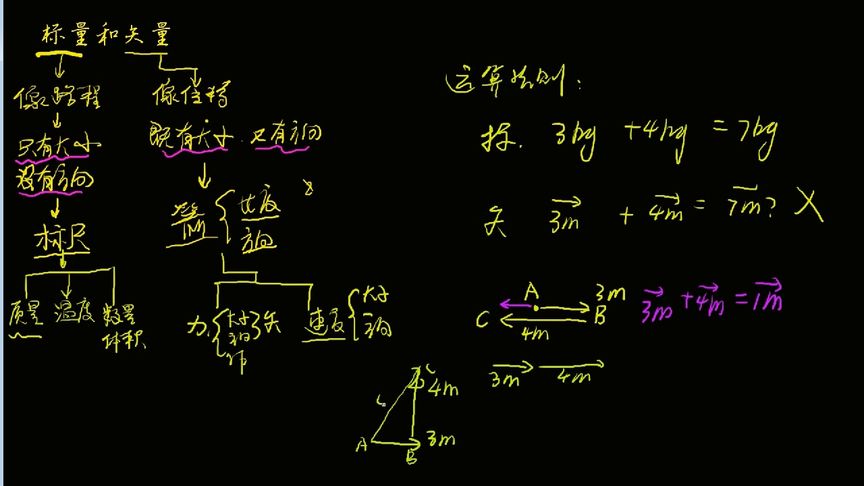 标量和矢量
像路程
像位移
只有大小
没有方向
既有大小 又有方向
标尺
长度
方向
质量 温度 数量
体积
力 大小 方向 矢
速度 大小 方向
运算法则：
标. 3kg + 4kg = 7kg
矢 3m + 4m = 7m? X
A 3m
C B
4m
3m + 4m = 1m
3m 4m
C
4m
A B 3m